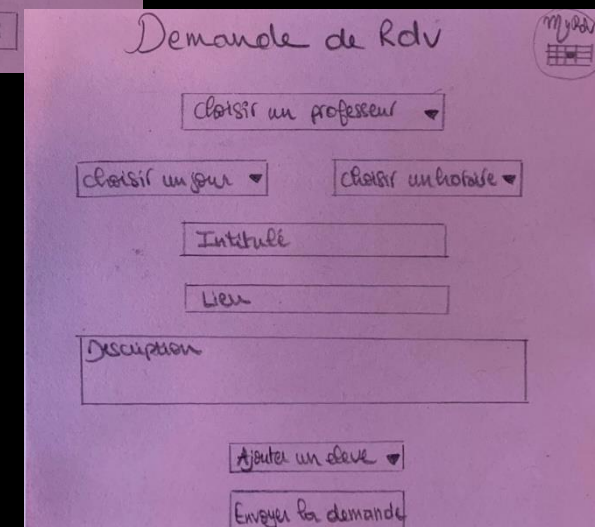 Demande de Rdv
MyRdv
Choisir un professeur
choisir un jour
choisir un horaire
Intitulé
Lieu
Description
Ajouter un eleve
Envoyer la demande